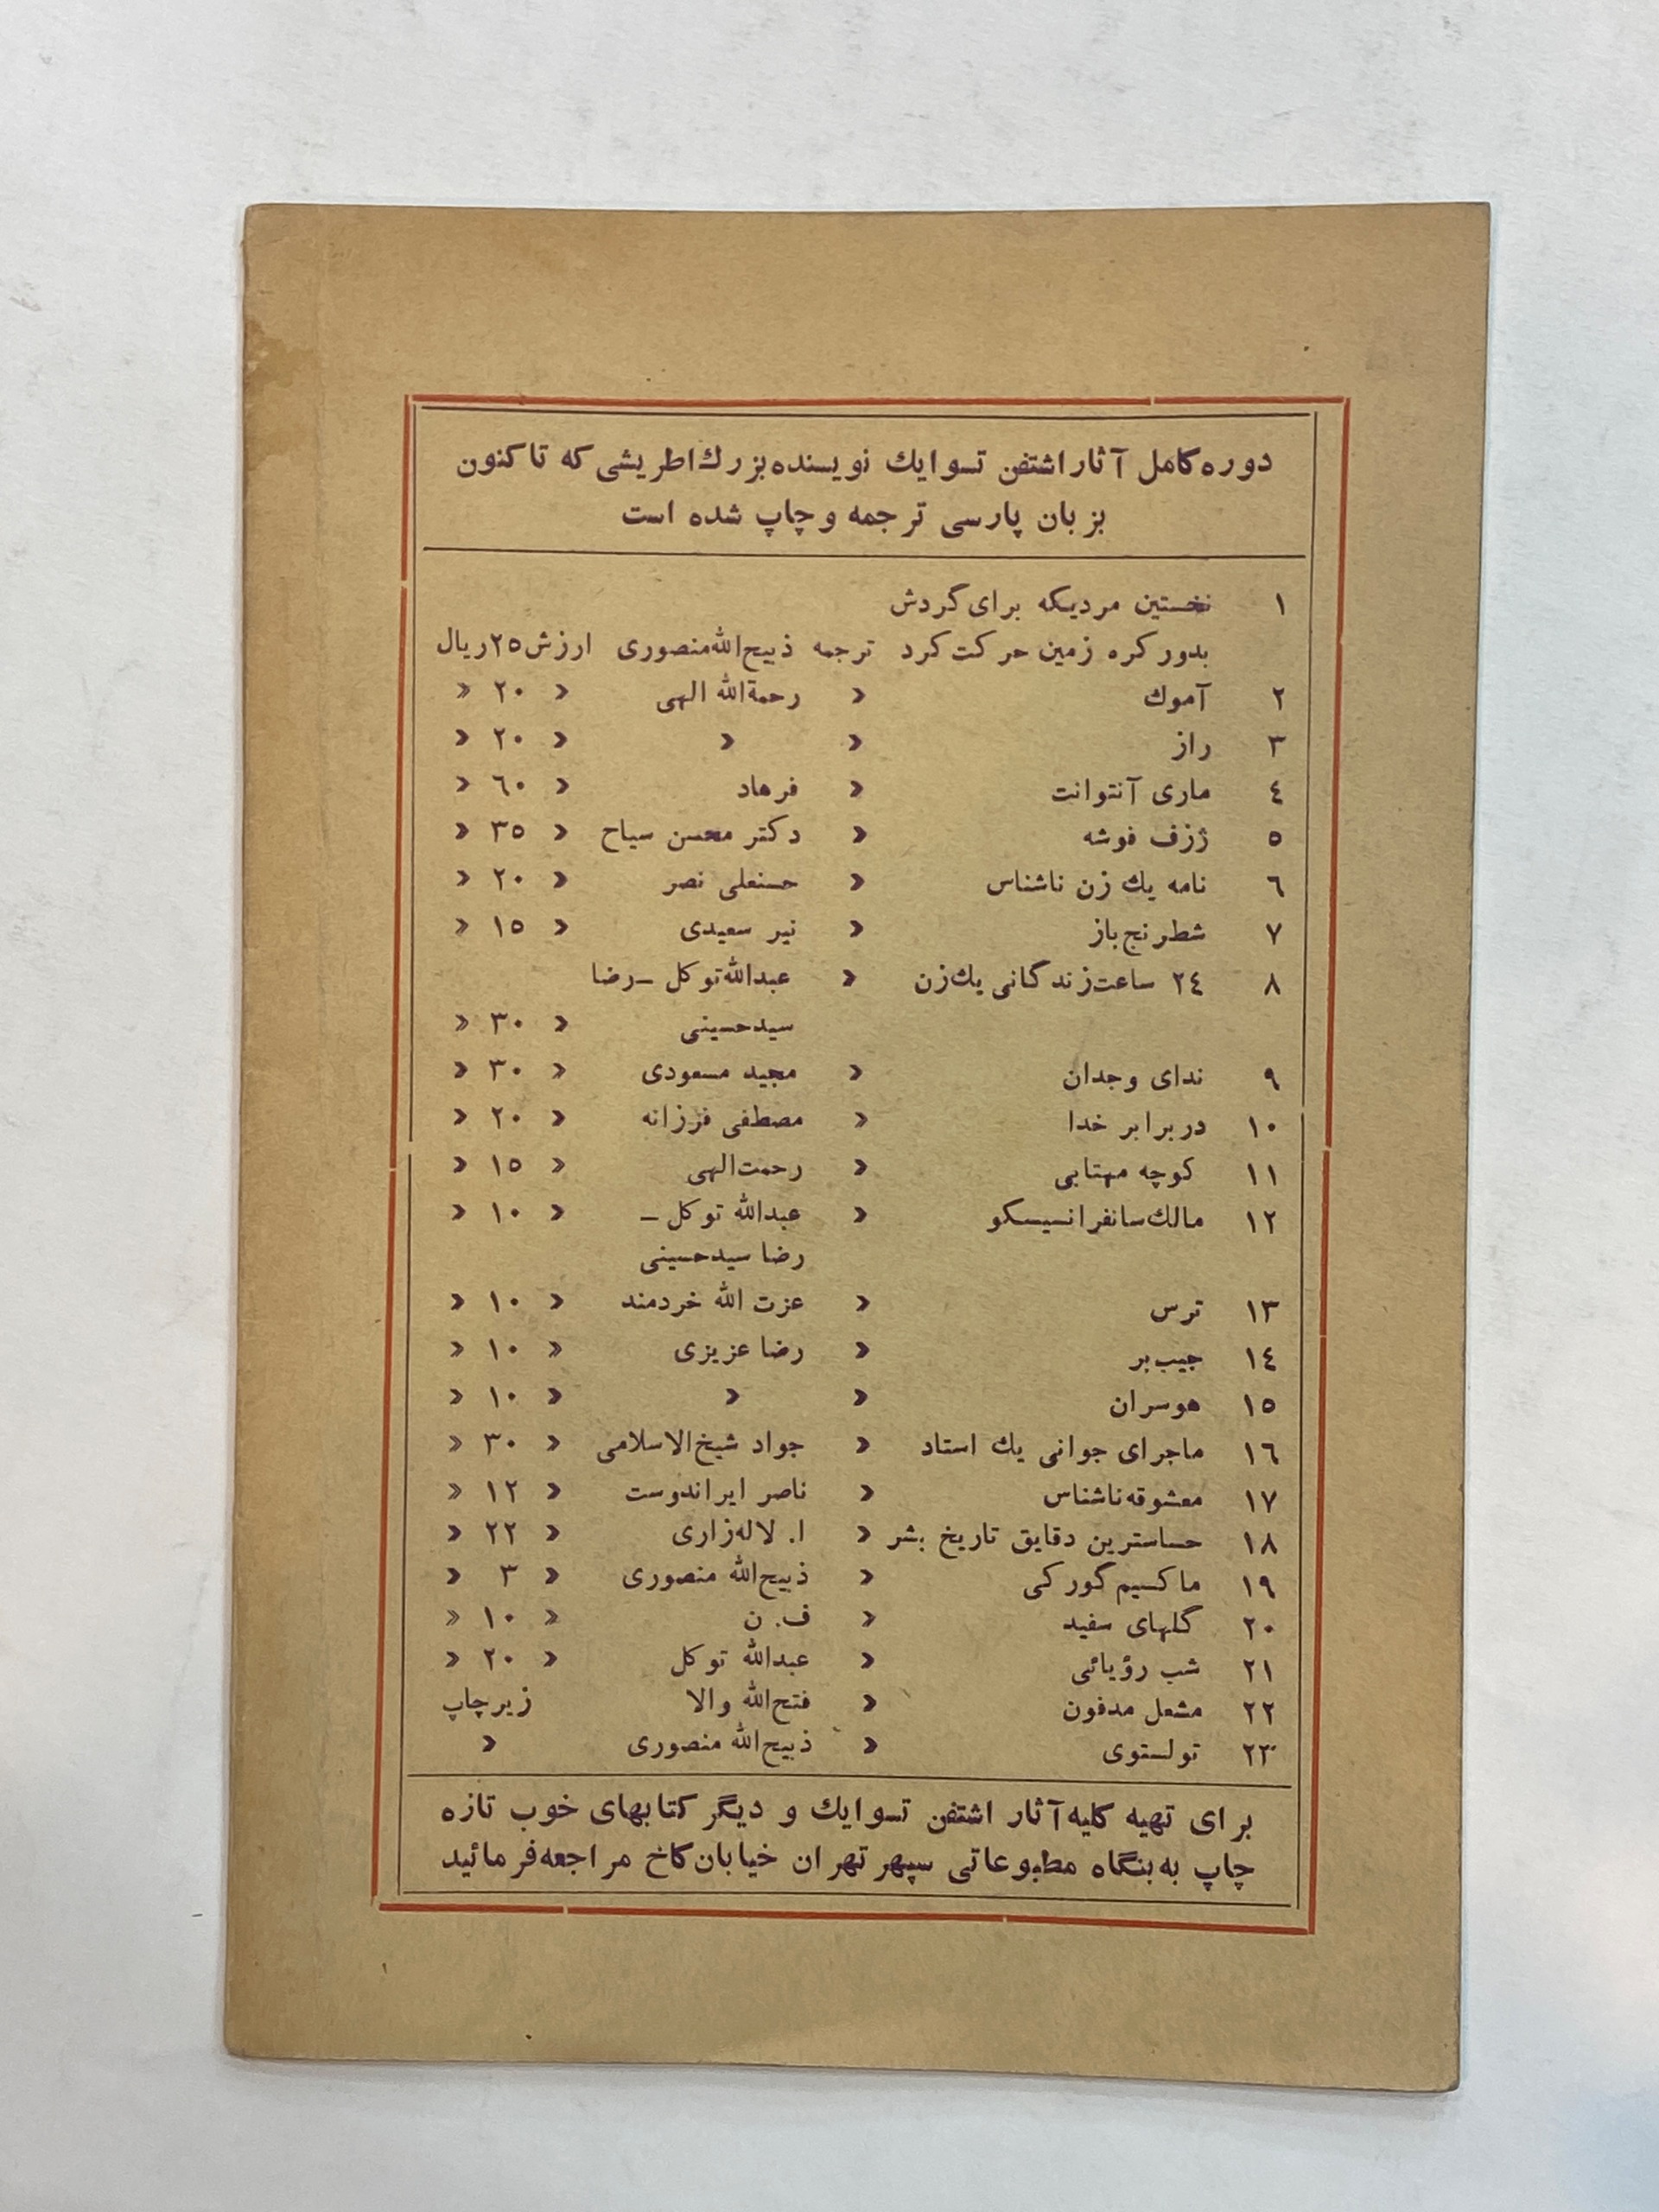 دوره کامل آثار اشتفن تسوایك نویسنده بزرك اطریشی که تا کنون
بزبان پارسی ترجمه و چاپ شده است
۱ نخستین مردیکه برای گردش
بدور کره زمین حرکت کرد ترجمه ذبیح‌الله منصوری ارزش ۲۵ ریال
۲ آموك » رحمةالله الهی » ۲۰ »
۳ راز » » » ۲۰ »
٤ ماری آنتوانت » فرهاد » ٦۰ »
٥ ژزف فوشه » دکتر محسن سیاح » ۳٥ »
٦ نامه یك زن ناشناس » حسنعلی نصر » ۲۰ »
۷ شطرنج باز » نیر سعیدی » ۱٥ »
۸ ۲٤ ساعت زندگانی یك زن » عبدالله توکل – رضا
سیدحسینی » ۳۰ »
۹ ندای وجدان » مجید مسعودی » ۳۰ »
۱۰ در برابر خدا » مصطفی فرزانه » ۲۰ »
۱۱ کوچه مهتابی » رحمت الهی » ۱٥ »
۱۲ مالك سانفرانسیسکو » عبدالله توکل – » ۱۰ »
رضا سیدحسینی
۱۳ ترس » عزت الله خردمند » ۱۰ »
۱٤ جیب‌بر » رضا عزیزی » ۱۰ »
۱٥ هوسران » » » ۱۰ »
۱٦ ماجرای جوانی یك استاد » جواد شیخ‌الاسلامی » ۳۰ »
۱۷ معشوقه ناشناس » ناصر ایراندوست » ۱۲ »
۱۸ حساسترین دقایق تاریخ بشر » ا. لاله‌زاری » ۲۲ »
۱۹ ماکسیم گورکی » ذبیح‌الله منصوری » ۳ »
۲۰ گلهای سفید » ف. ن » ۱۰ »
۲۱ شب رؤیائی » عبدالله توکل » ۲۰ »
۲۲ مشعل مدفون » فتح‌الله والا زیر چاپ
۲۳ تولستوی » ذبیح‌الله منصوری »
برای تهیه کلیه آثار اشتفن تسوایك و دیگر کتابهای خوب تازه
چاپ به بنگاه مطبوعاتی سپهر تهران خیابان کاخ مراجعه فرمائید